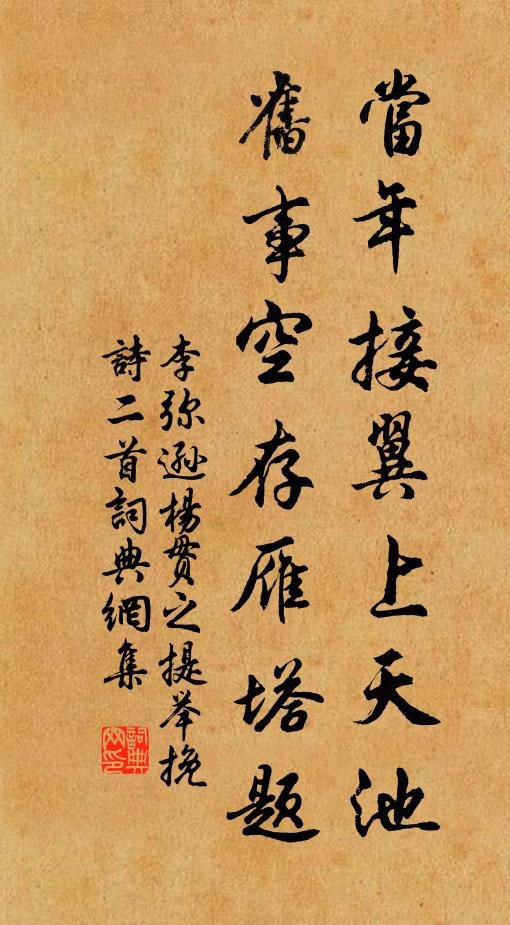 當年接翼上天池
舊事空存雁塔题
李弥遜楊貫之提举挽
詩二首詞典網集
詞典
网印